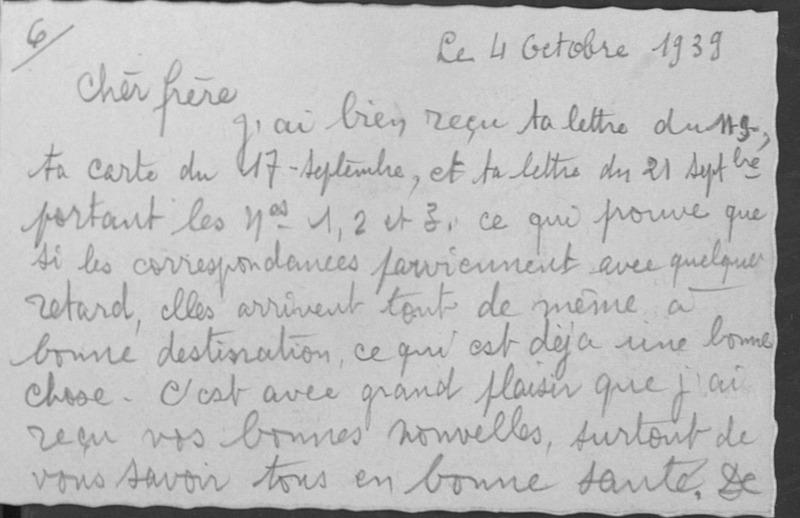 6/
Le 4 Octobre 1939
Chèr frère
J'ai bien reçu ta lettre du
ta carte du 17-Septembre, et ta lettre du 21 Sept bre
portant les Nos 1, 2 et 3. ce qui prouve que
si les correspondances parviennent avec quelque
retard, elles arrivent tout de même à
bonne destination, ce qui est déjà une bonne
chose. C'est avec grand plaisir que j'ai
reçu vos bonnes nouvelles, surtout de
vous savoir tous en bonne santé. De